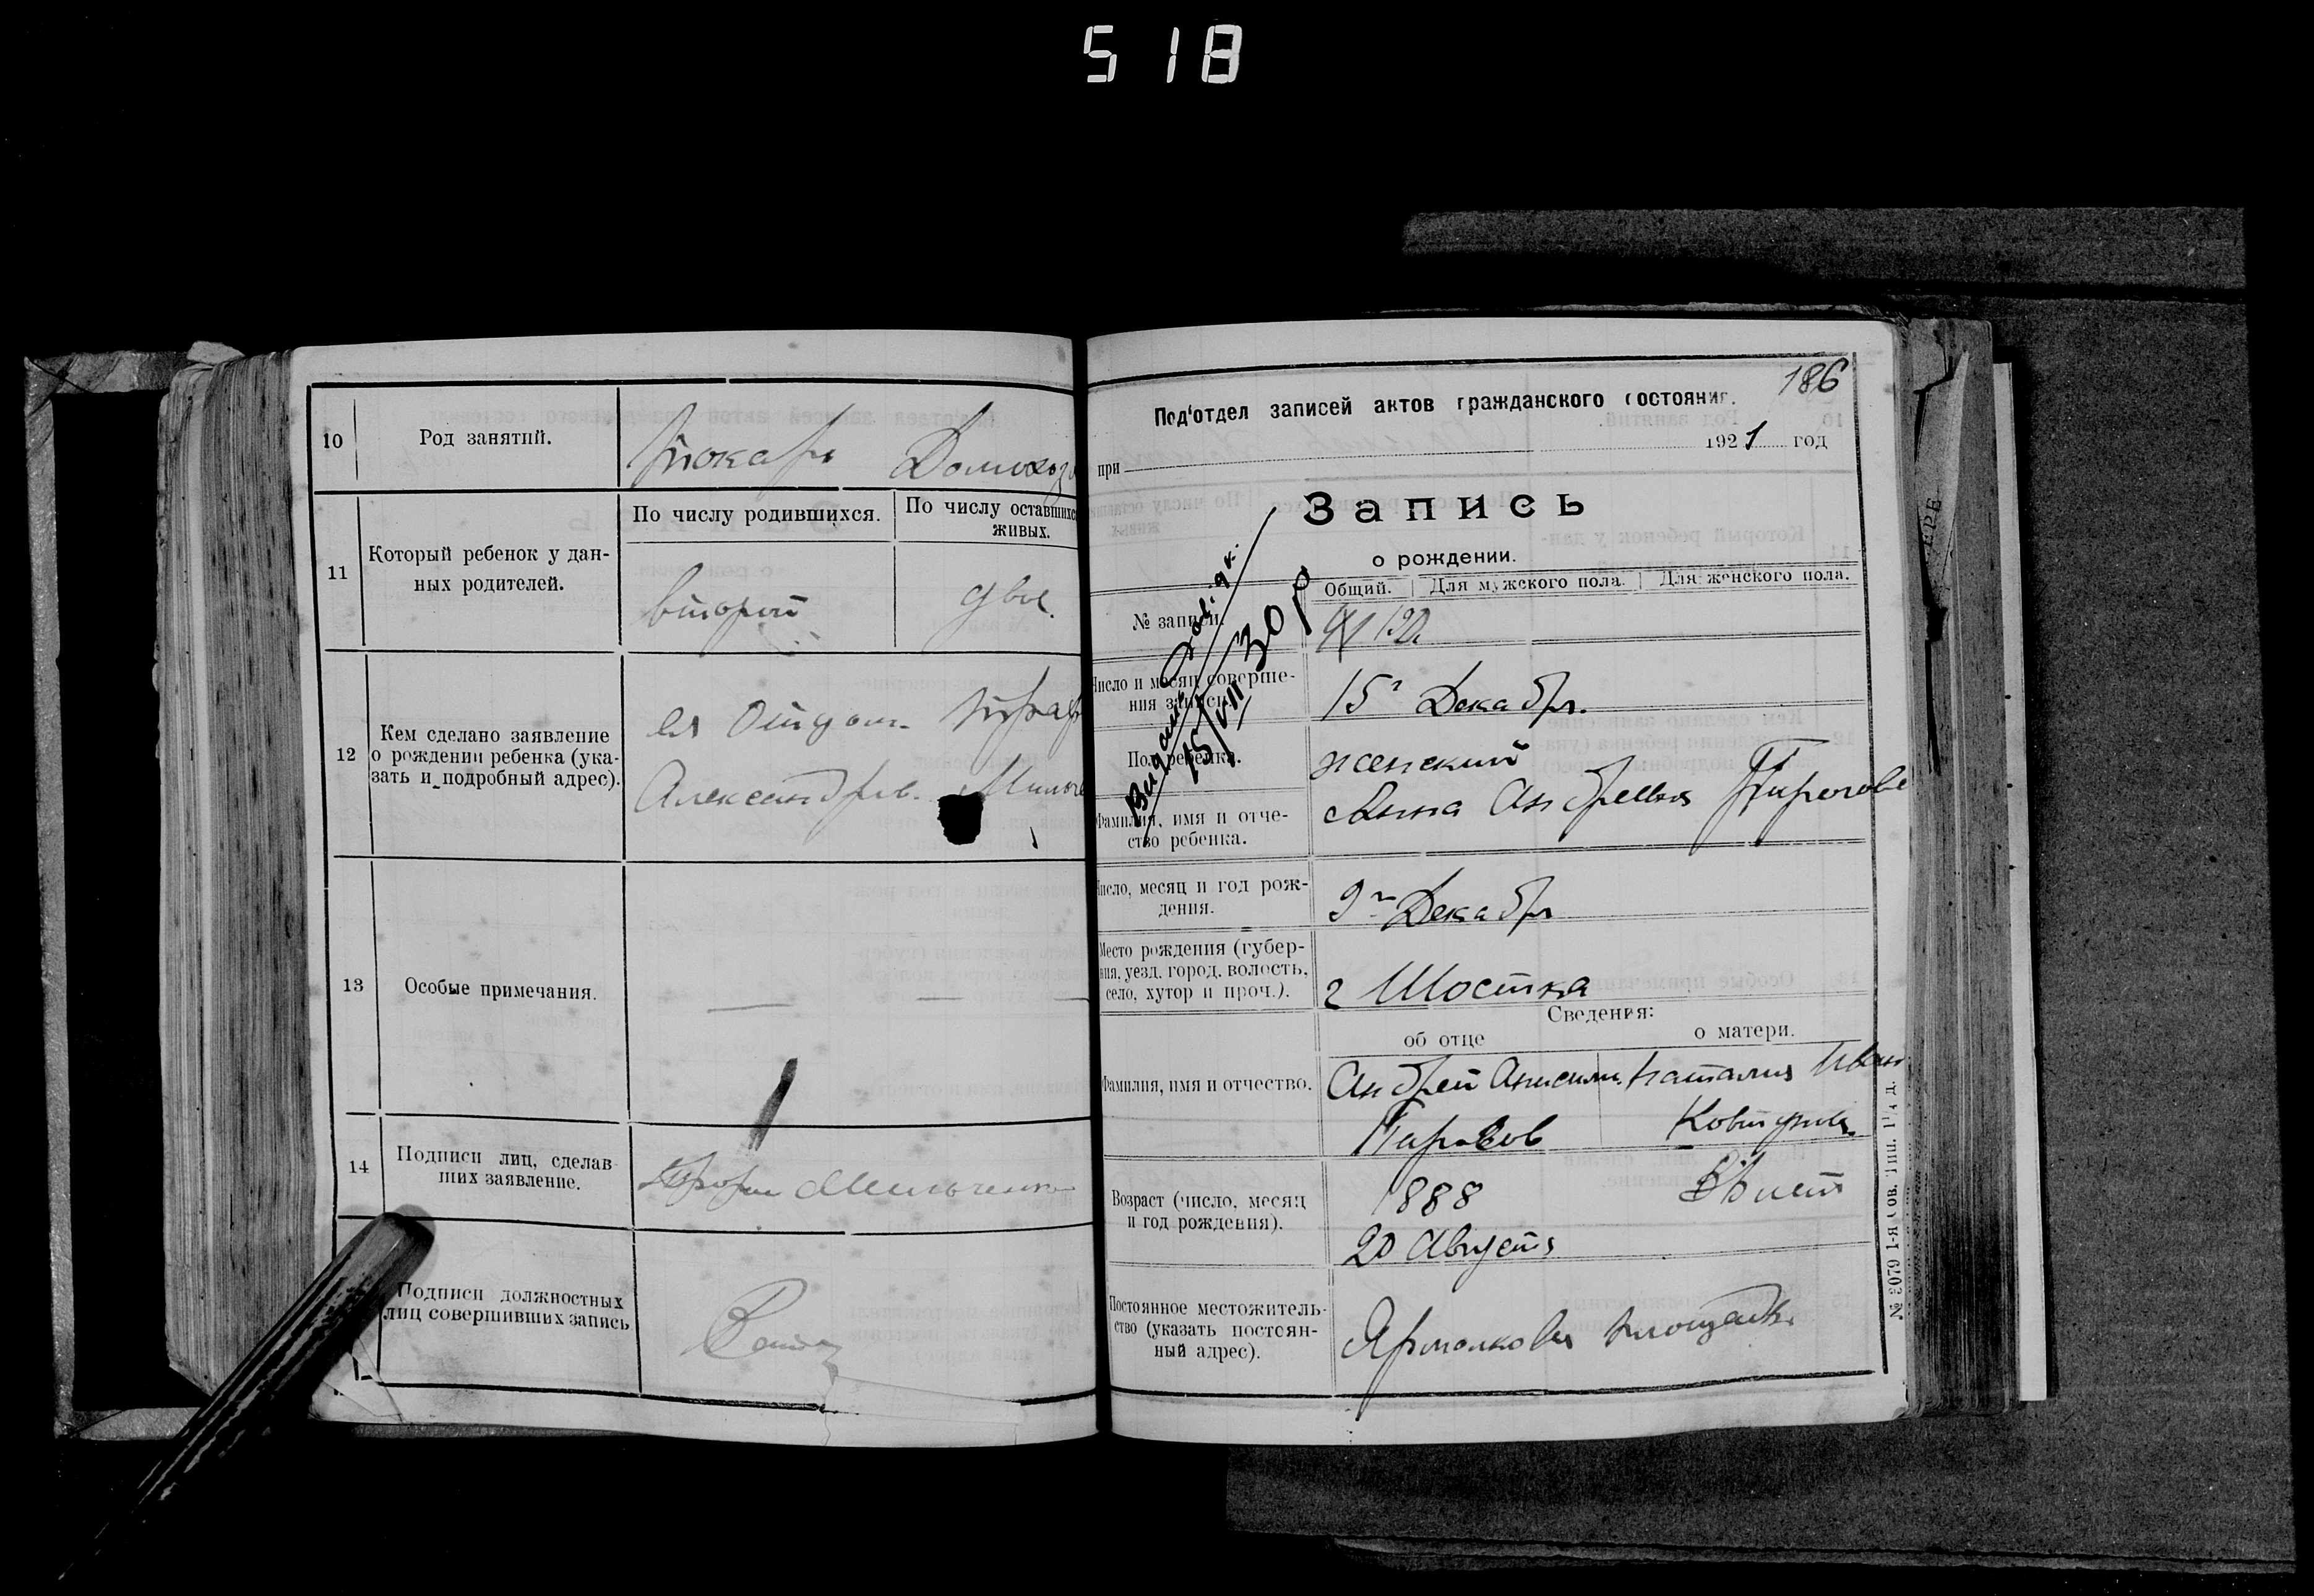 518
10
Род занятий.
токарь
Домохоз
11
Который ребенок у дан-
ных родителей.
По числу родившихся.
По числу оставшихся
живых.
второй
двое.
12
Кем сделано заявление
о рождении ребенка (ука-
зать и подробный адрес).
Александров.
13
Особые примечания.
—
14
Подписи лиц, сделав-
ших заявление.
Подписи должностных
лиц совершивших запись
186
Под'отдел записей актов гражданского состояния.
при
1921 год
Запись
о рождении.
15/VII 30 р
Общий.
Для мужского пола.
Для женского пола.
№ записи.
Число и месяц соверше-
ния записи.
15го Декабря.
Пол ребенка.
женский
Фамилия, имя и отче-
ство ребенка.
Анна Андреевна
Число, месяц и год рож-
дения.
9го Декабря
Место рождения (губер-
ния, уезд, город, волость,
село, хутор и проч.).
г Шостка
Сведения:
об отце
о матери.
Фамилия, имя и отчество.
Андрей Анисим.
Наталия Иван
Возраст (число, месяц
и год рождения).
1888
20 Августа
Постоянное местожитель-
ство (указать постоян-
ный адрес).
Ярмолкова площадь
№ 3079 1-я Сов. Тип.